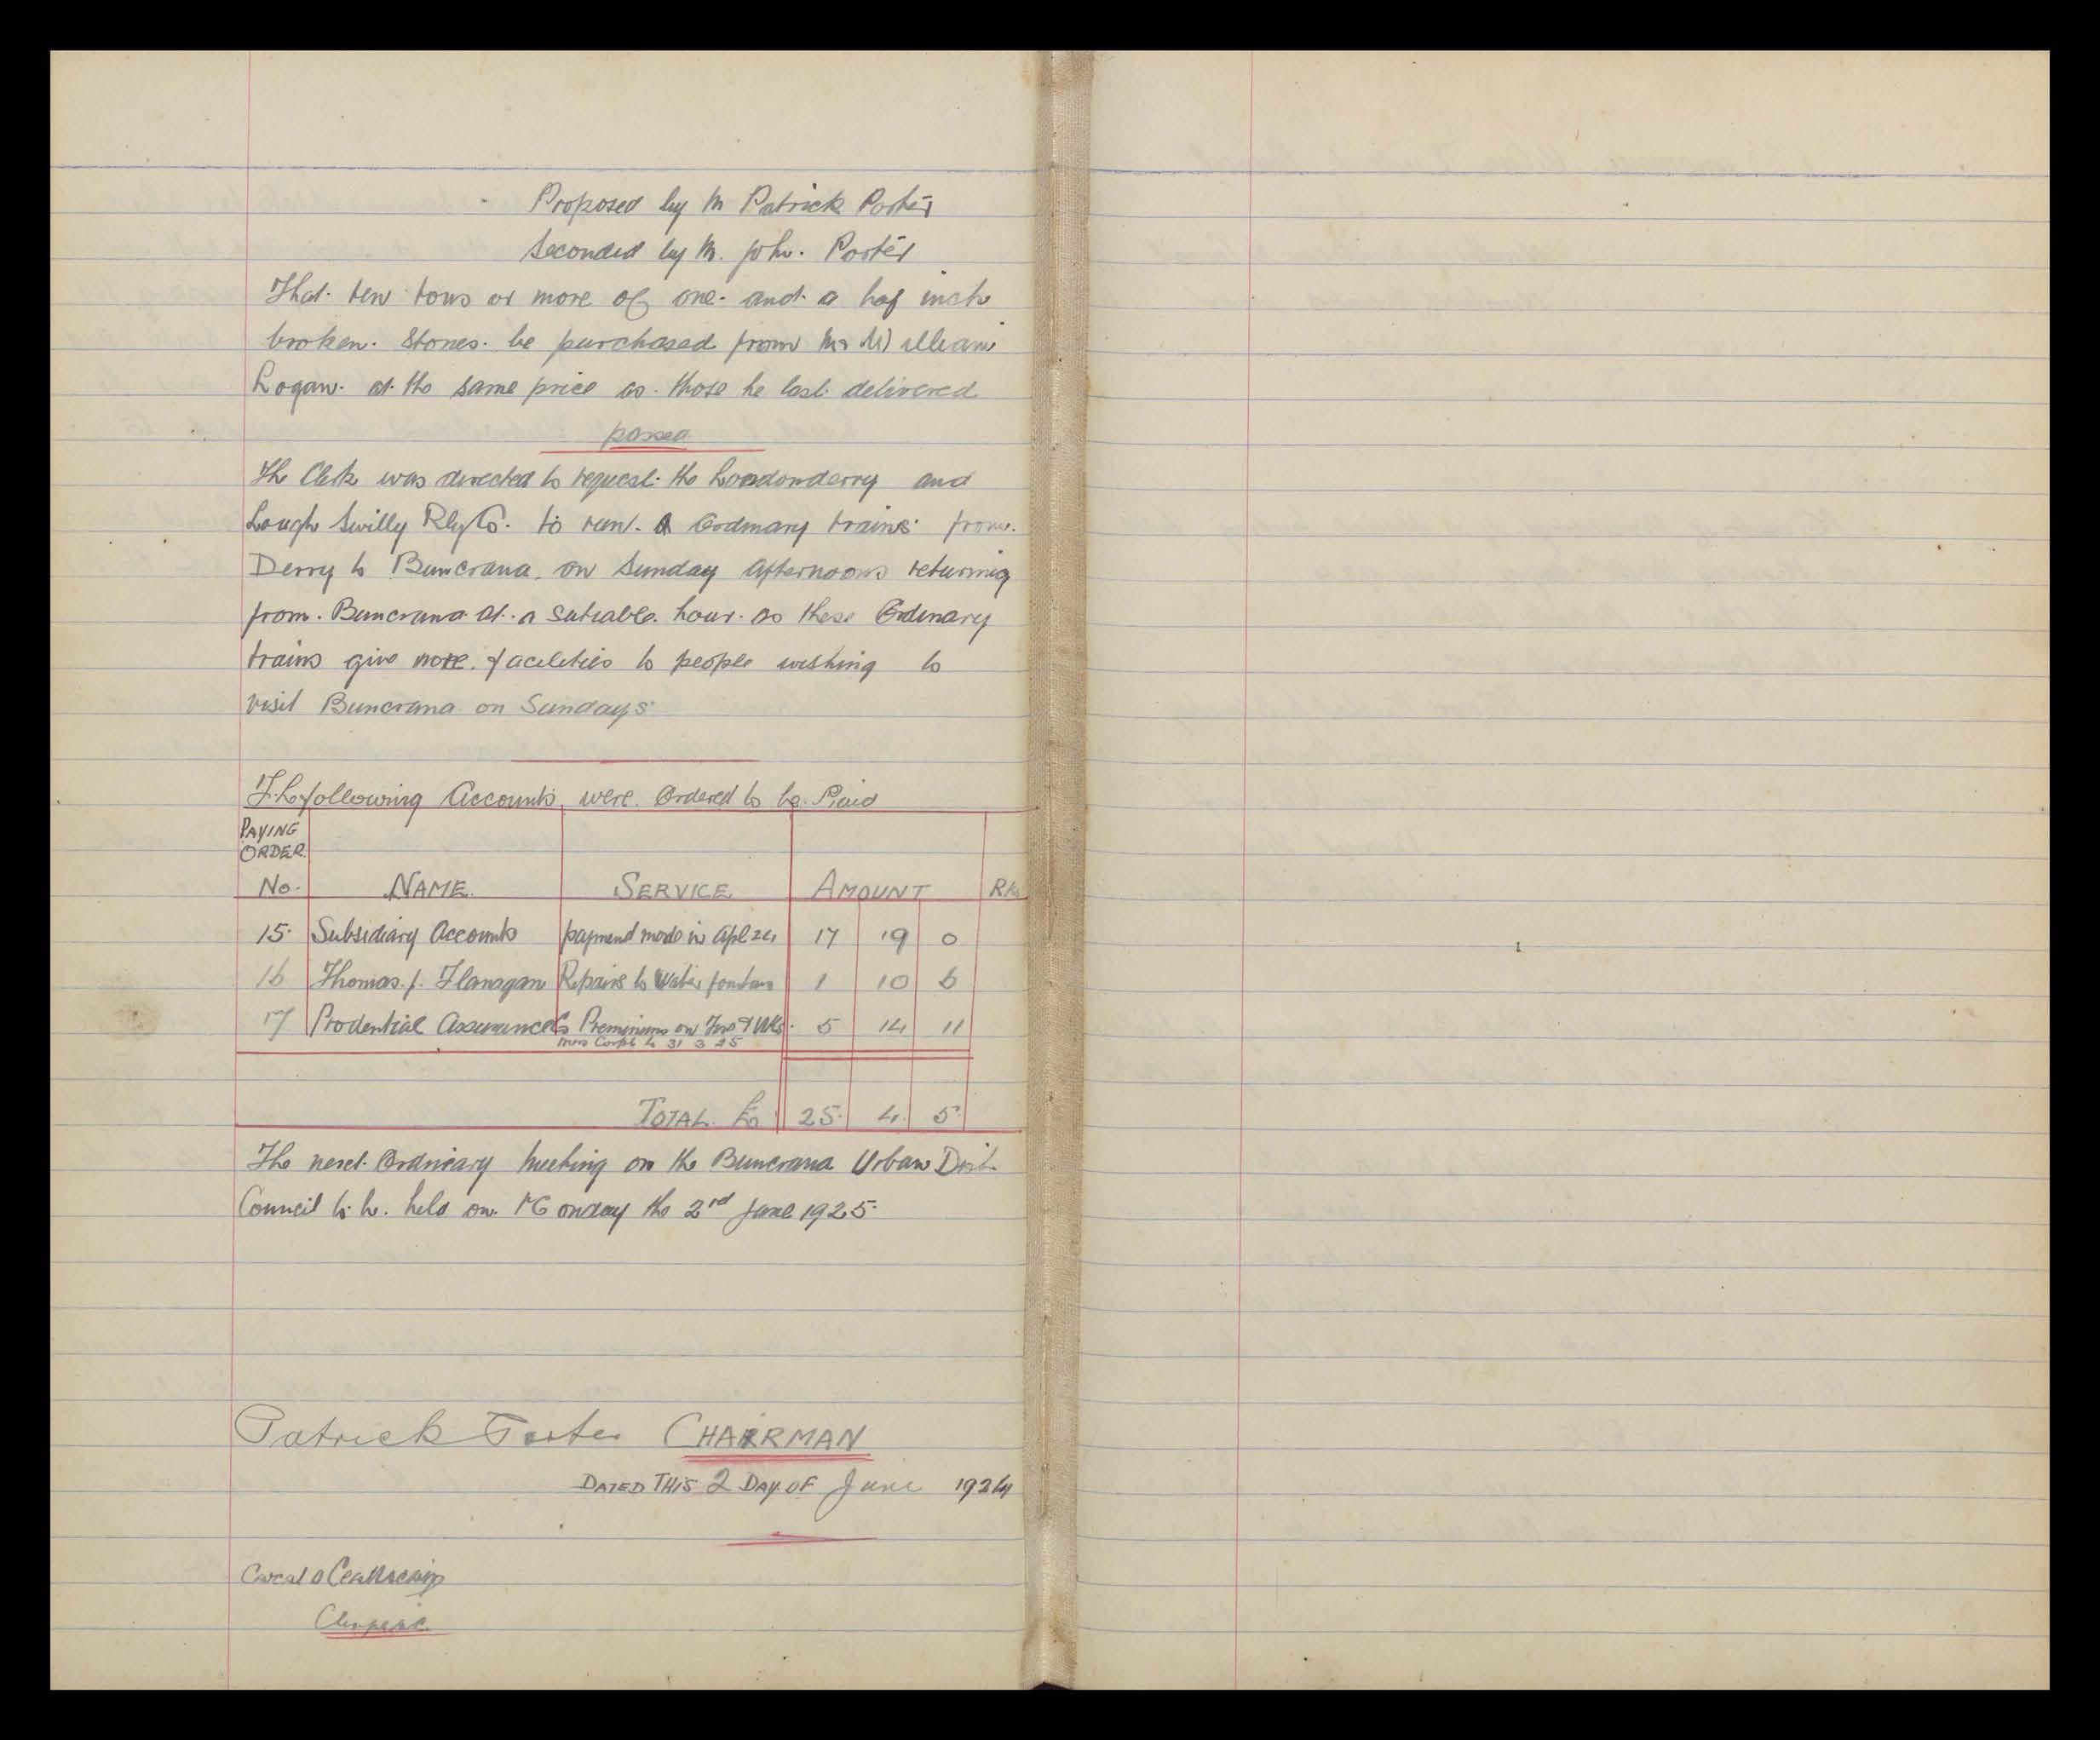 Proposed by Mr Patrick Porter
Seconded by Mr. John. Porter
That ten tons or more of one and a haf inch
broken. Stones. be purchased from Mr William
Logan. at the same price as those he last delivered
passed
The Clerk was directed to request the Londonderry and
Lough Swilly Rly Co. to run. Ordinary trains from.
Derry to Buncrana. on Sunday afternoons returning
from. Buncrana at a sutiable. hour. as these Ordinary
trains give more facilities to people wishing to
visit Buncrana on Sundays
The following Accounts were Ordered to be Paid
PAYING
ORDER
No. NAME. SERVICE AMOUNT
15. Subsidiary Accounts payment made in Apl 24 17 19 0
16 Thomas. J. Flanagan Repairs to Water 1 10 6
17 Prodential Assurance Co Premiums on Fire & Wks. 5 14 11
to 31 3 25
TOTAL. £ 25. 4. 5.
The next Ordinary meeting on the Buncrana Urban Dist
Council to be. held on. Monday the 2nd June 1925.
Patrick Porter CHAIRMAN
DATED THIS 2 DAY OF June 1924